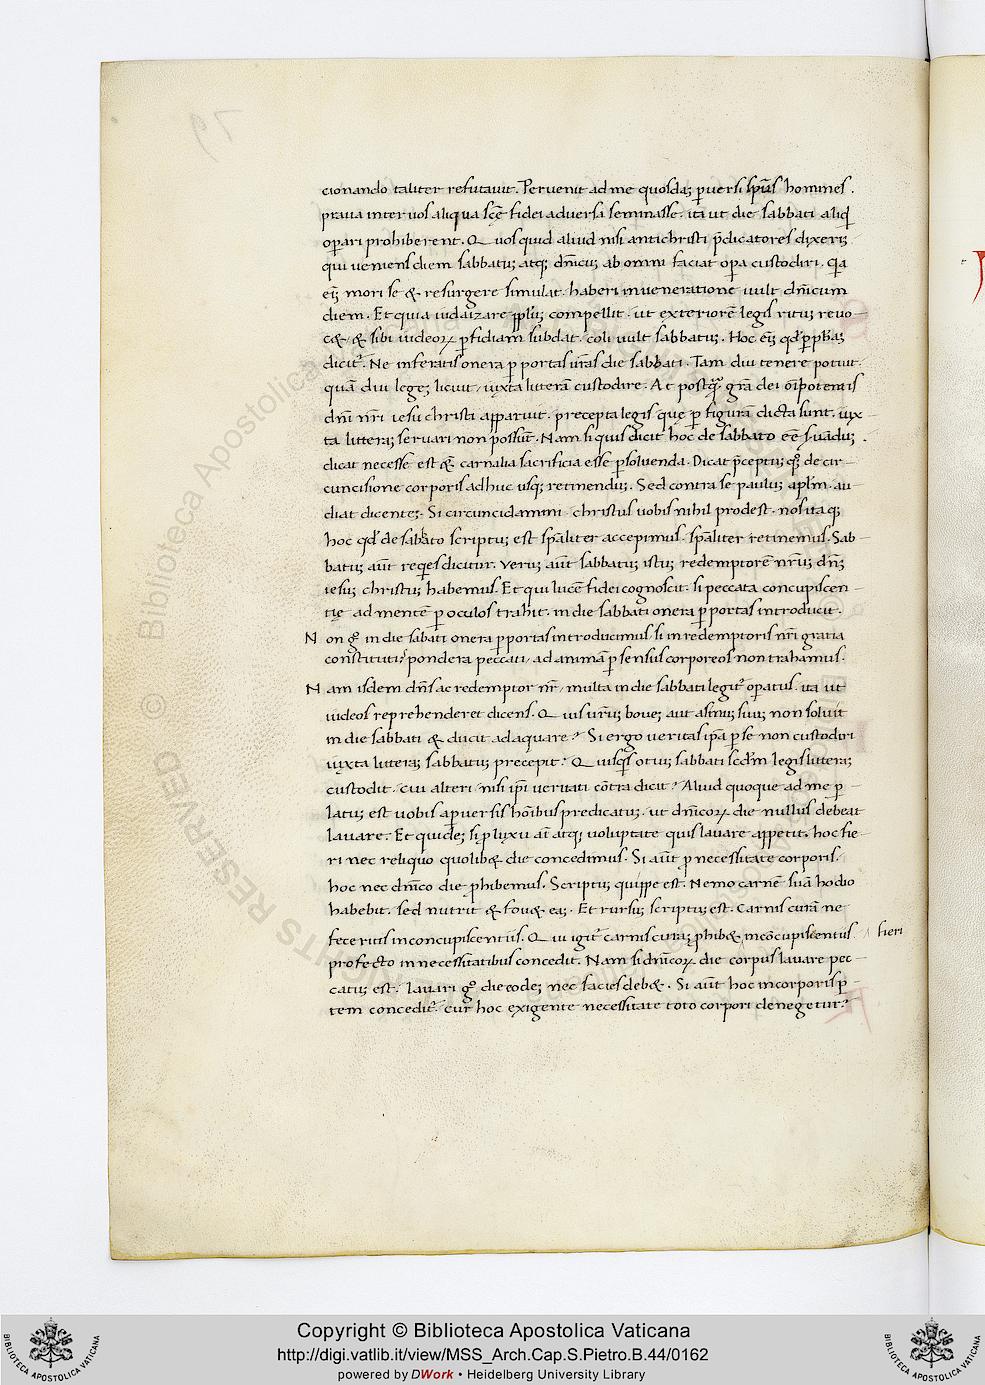 cionando taliter refutauit. Peruenit ad me quosdaꝫ ꝑuersi sp̅us homines.
praua inter uos aliqua scē fidei aduersa seminasse. ita ut die sabbati aliqd̄
oꝑari prohiberent. Quos quid aliud nisi antichristi p̄dicatores dixeriꝫ
qui ueniens diem sabbatuꝫ atqꝫ dn̄icuꝫ ab omni faciat oꝑa custodiri. Qia
eiꝫ mori se & resurgere simulat. haberi in ueneratione uult dn̄icum
diem. Et quia iudaizare ppl̄uꝫ compellit. ut exteriorē legis rituꝫ reuo
c&. & sibi iudeoꝝ ꝑfidiam subdat. coli uult sabbatuꝫ. Hoc eiꝫ qd̄ ꝑ ꝓph̄aꝫ
dicit᷑. Ne inferatis onera ꝑ portas ur̄as die sabbati. Tam diu tenere potuit.
quā diu legeꝫ licuit iuxta literam custodire. At postqꝫ gr̄a dei om̄ipotentis
dn̄i nr̄i iesu christi apparuit. precepta legis quę ꝑ figurā dicta sunt. iux
ta litteraꝫ seruari non possūt. Nam si quis dicit hoc de sabbato eē seruāduꝫ.
dicat necesse est & carnalia sacrificia esse ꝑsoluenda. Dicat p̄ceptuꝫ qꝫ de cir
cuncisione corporis adhuc usqꝫ retinenduꝫ. Sed contra se pauluꝫ apl̄m. au
diat dicenteꝫ. Si circuncidamini christus uobis nihil prodest. nos itaqꝫ
hoc qd̄ de sabato scriptuꝫ est sp̄aliter accepimus. sp̄aliter retinemus. Sab
batuꝫ aūt reqͥes dicitur. Veruꝫ aūt sabbatuꝫ istuꝫ redemptorē nr̄uꝫ dn̄ꝫ
iesuꝫ christuꝫ habemus. Et qui lucē fidei cognoscit. si peccata concupiscen
tię ad mentē ꝑ oculos trahit. in die sabbati onera ꝑ portas introducit.
Non gͦ in die sabati onera ꝑ portas introducimus. si in redemptoris nr̄i gratia
constituti pondera peccati ad animā ꝑ sensus corporeos non trahamus.
Nam isdem dn̄s ac redemptor nr̄ multa in die sabbati legit᷑ oꝑatus. ita ut
iudeos reprehenderet dicens. Quis ur̄uꝫ boueꝫ aut asinuꝫ suuꝫ non soluit
in die sabbati & ducit adaquare? Si ergo ueritas ip̄a ꝑ se non custodiri
iuxta litteraꝫ sabbatuꝫ precepit? Quisqͥs otiuꝫ sabbati scd̄m legis litteraꝫ
custodit. cui alteri nisi ip̄i ueritati cōtra dicit? Aliud quoque ad me ꝑ
latuꝫ est uobis a ꝑuersis hoībus predicatuꝫ. ut dn̄icoꝝ die nullus debeat
lauare. Et quideꝫ si ꝓ luxu aī atqꝫ uoluptate quis lauare appetit. hoc fie
ri nec reliquo quolib& die concedimus. Si aūt ꝓ necessitate corporis.
hoc nec dn̄ico die ꝓhibemus. Scriptuꝫ quippe est. Nemo carnē suā hodio
habebit. sed nutrit & fou& eaꝫ. Et rursuꝫ scriptuꝫ est. Carnis curā ne
feceritis in concupiscentiis. Qui igit᷑ carnis curaꝫ ꝓhib& in cōcupiscentiis fieri
profecto in necessitatibus concedit. Nam si dn̄icoꝝ die corpus lauare pec
catuꝫ est. lauari gͦ die eodeꝫ nec facies deb&. Si aūt hoc in corporis ꝑ
tem concedit᷑. cur hoc exigente necessitate toto corpori denegetur?
Copyright © Biblioteca Apostolica Vaticana
http://digi.vatlib.it/view/MSS_Arch.Cap.S.Pietro.B.44/0162
powered by DWork • Heidelberg University Library